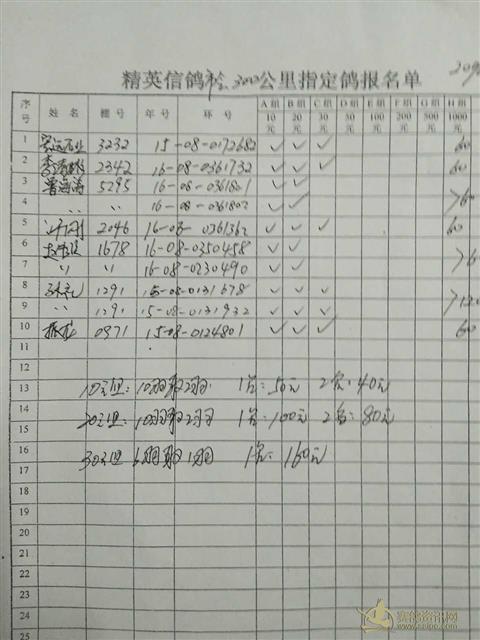 精英信鸽 300公里指定鸽报名单
序号 姓名 棚号 年号 环号 A组10元 B组20元 C组30元 D组50元 E组100元 F组200元 G组500元 H组1000元
1 3232 15-08-0172682 ✓ ✓ ✓ 60
2 2342 16-08-0361732 ✓ ✓ ✓ 60
3 5295 16-08-0361801 ✓ ✓
4 〃 〃 16-08-0361802 ✓ ✓ >60
5 2046 16-08-0361362 ✓ ✓ ✓ 60
6 1678 16-08-0350458 ✓ ✓
7 〃 〃 16-08-0230490 ✓ ✓ >6
8 1291 15-08-0131678 ✓ ✓ ✓
9 〃 1291 15-08-0131932 ✓ ✓ ✓ >120
10 0971 15-08-0124801 ✓ ✓ ✓ 60
11
12
13 10元组: 10羽取2羽 1名: 50元 2名: 40元
14
15 20元组: 10羽取2羽 1名: 100元 2名: 80元
16 30元组 6羽取1羽 1名: 160元
17
18
19
20
21
22
23
24
25
赛鸽资讯网